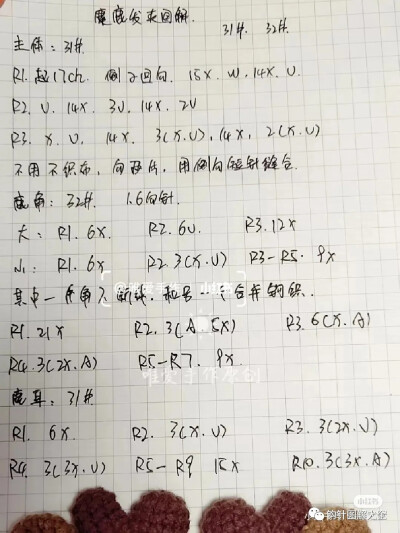 麋鹿发夹图解.
31#. 32#.
主体: 31#.
R1. 起17ch. 倒2回勾. 15X. W. 14X. V.
R2. V. 14X. 3V. 14X. 2V
R3. X. V. 14X. 3(X.V). 14X. 2(X.V)
不用不织布, 勾两片, 用 短针缝合.
鹿角: 32#. 1.6勾针.
大: R1. 6X. R2. 6V. R3. 12X
小: R1. 6X R2. 3(X.V) R3-R5. 9X
其中一 角不断线. 和另一个合并钩织.
R1. 21X R2. 3(A.5X) R3. 6(X.A)
R4. 3(2X.A) R5-R7. 9X.
唯爱手作原创
鹿耳: 31#.
R1. 6X R2. 3(X.V) R3. 3(2X.V)
R4. 3(3X.V) R5-R9 15X R10. 3(3X.A)
小红书
钩针图解之家